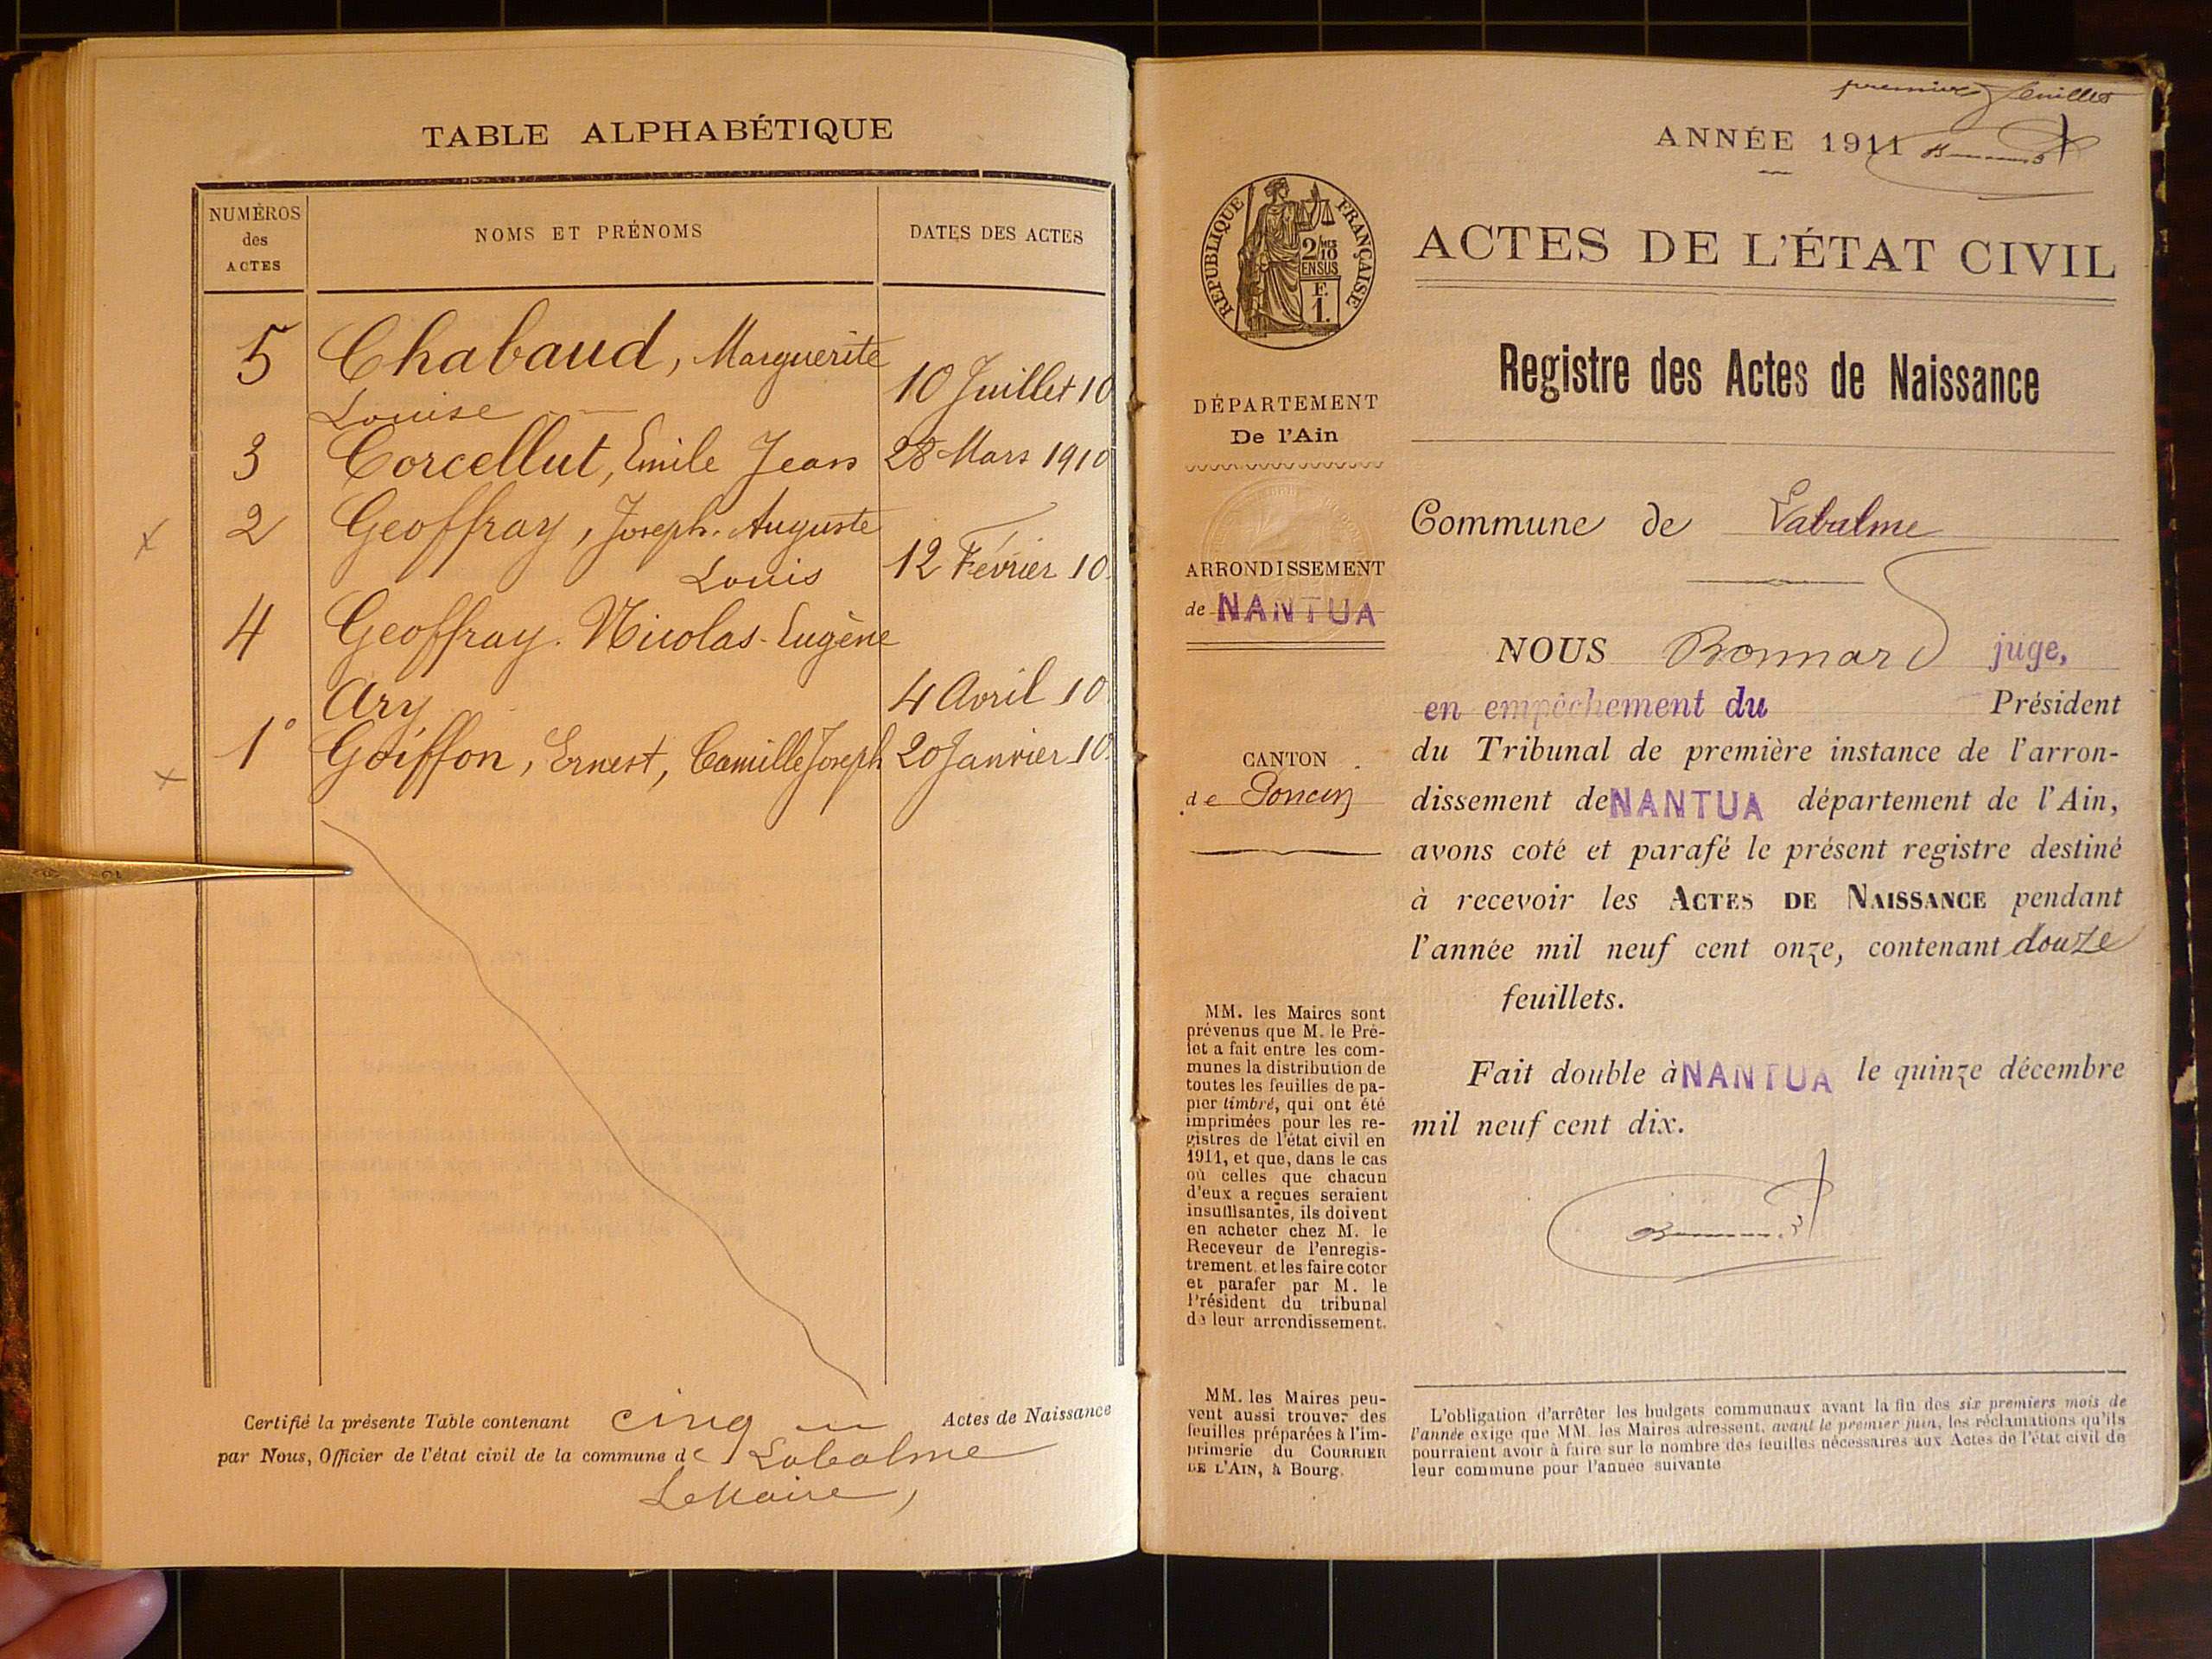 TABLE ALPHABÉTIQUE
NUMÉROS
des
ACTES
NOMS ET PRÉNOMS
DATES DES ACTES
5 Chabaud, Marguerite
Louise 10 Juillet 10
3 Corcellut, Emile Jean 28 Mars 1910
2 Geoffray, Joseph-Auguste
Louis 12 Février 10.
4 Geoffray. Nicolas-Eugène
Ary 4 Avril 10.
1° Goiffon, Ernest, Camille Joseph 20 Janvier 10.
Certifié la présente Table contenant cinq Actes de Naissance
par Nous, Officier de l'état civil de la commune de Labalme
Le Maire,
premier feuillet
ANNÉE 1911
RÉPUBLIQUE FRANÇAISE
2/10
EN SUS
F.
1.
ACTES DE L'ÉTAT CIVIL
Registre des Actes de Naissance
DÉPARTEMENT
De l'Ain
ARRONDISSEMENT
de NANTUA
CANTON
de Poncin
MM. les Maires sont
prévenus que M. le Pré-
fet a fait entre les com-
munes la distribution de
toutes les feuilles de pa-
pier timbré, qui ont été
imprimées pour les re-
gistres de l'état civil en
1911, et que, dans le cas
où celles que chacun
d'eux a reçues seraient
insuffisantes, ils doivent
en acheter chez M. le
Receveur de l'enregis-
trement. et les faire coter
et parafer par M. le
Président du tribunal
de leur arrondissement.
MM. les Maires peu-
vent aussi trouver des
feuilles préparées à l'im-
primerie du COURRIER
DE L'AIN, à Bourg.
Commune de Labalme
NOUS Bonnard juge,
en empêchement du Président
du Tribunal de première instance de l'arron-
dissement de NANTUA département de l'Ain,
avons coté et parafé le présent registre destiné
à recevoir les ACTES DE NAISSANCE pendant
l'année mil neuf cent onze, contenant douze
feuillets.
Fait double à NANTUA le quinze décembre
mil neuf cent dix.
L'obligation d'arrêter les budgets communaux avant la fin des six premiers mois de
l'année exige que MM. les Maires adressent, avant le premier juin, les réclamations qu'ils
pourraient avoir à faire sur le nombre des feuilles nécessaires aux Actes de l'état civil de
leur commune pour l'année suivante